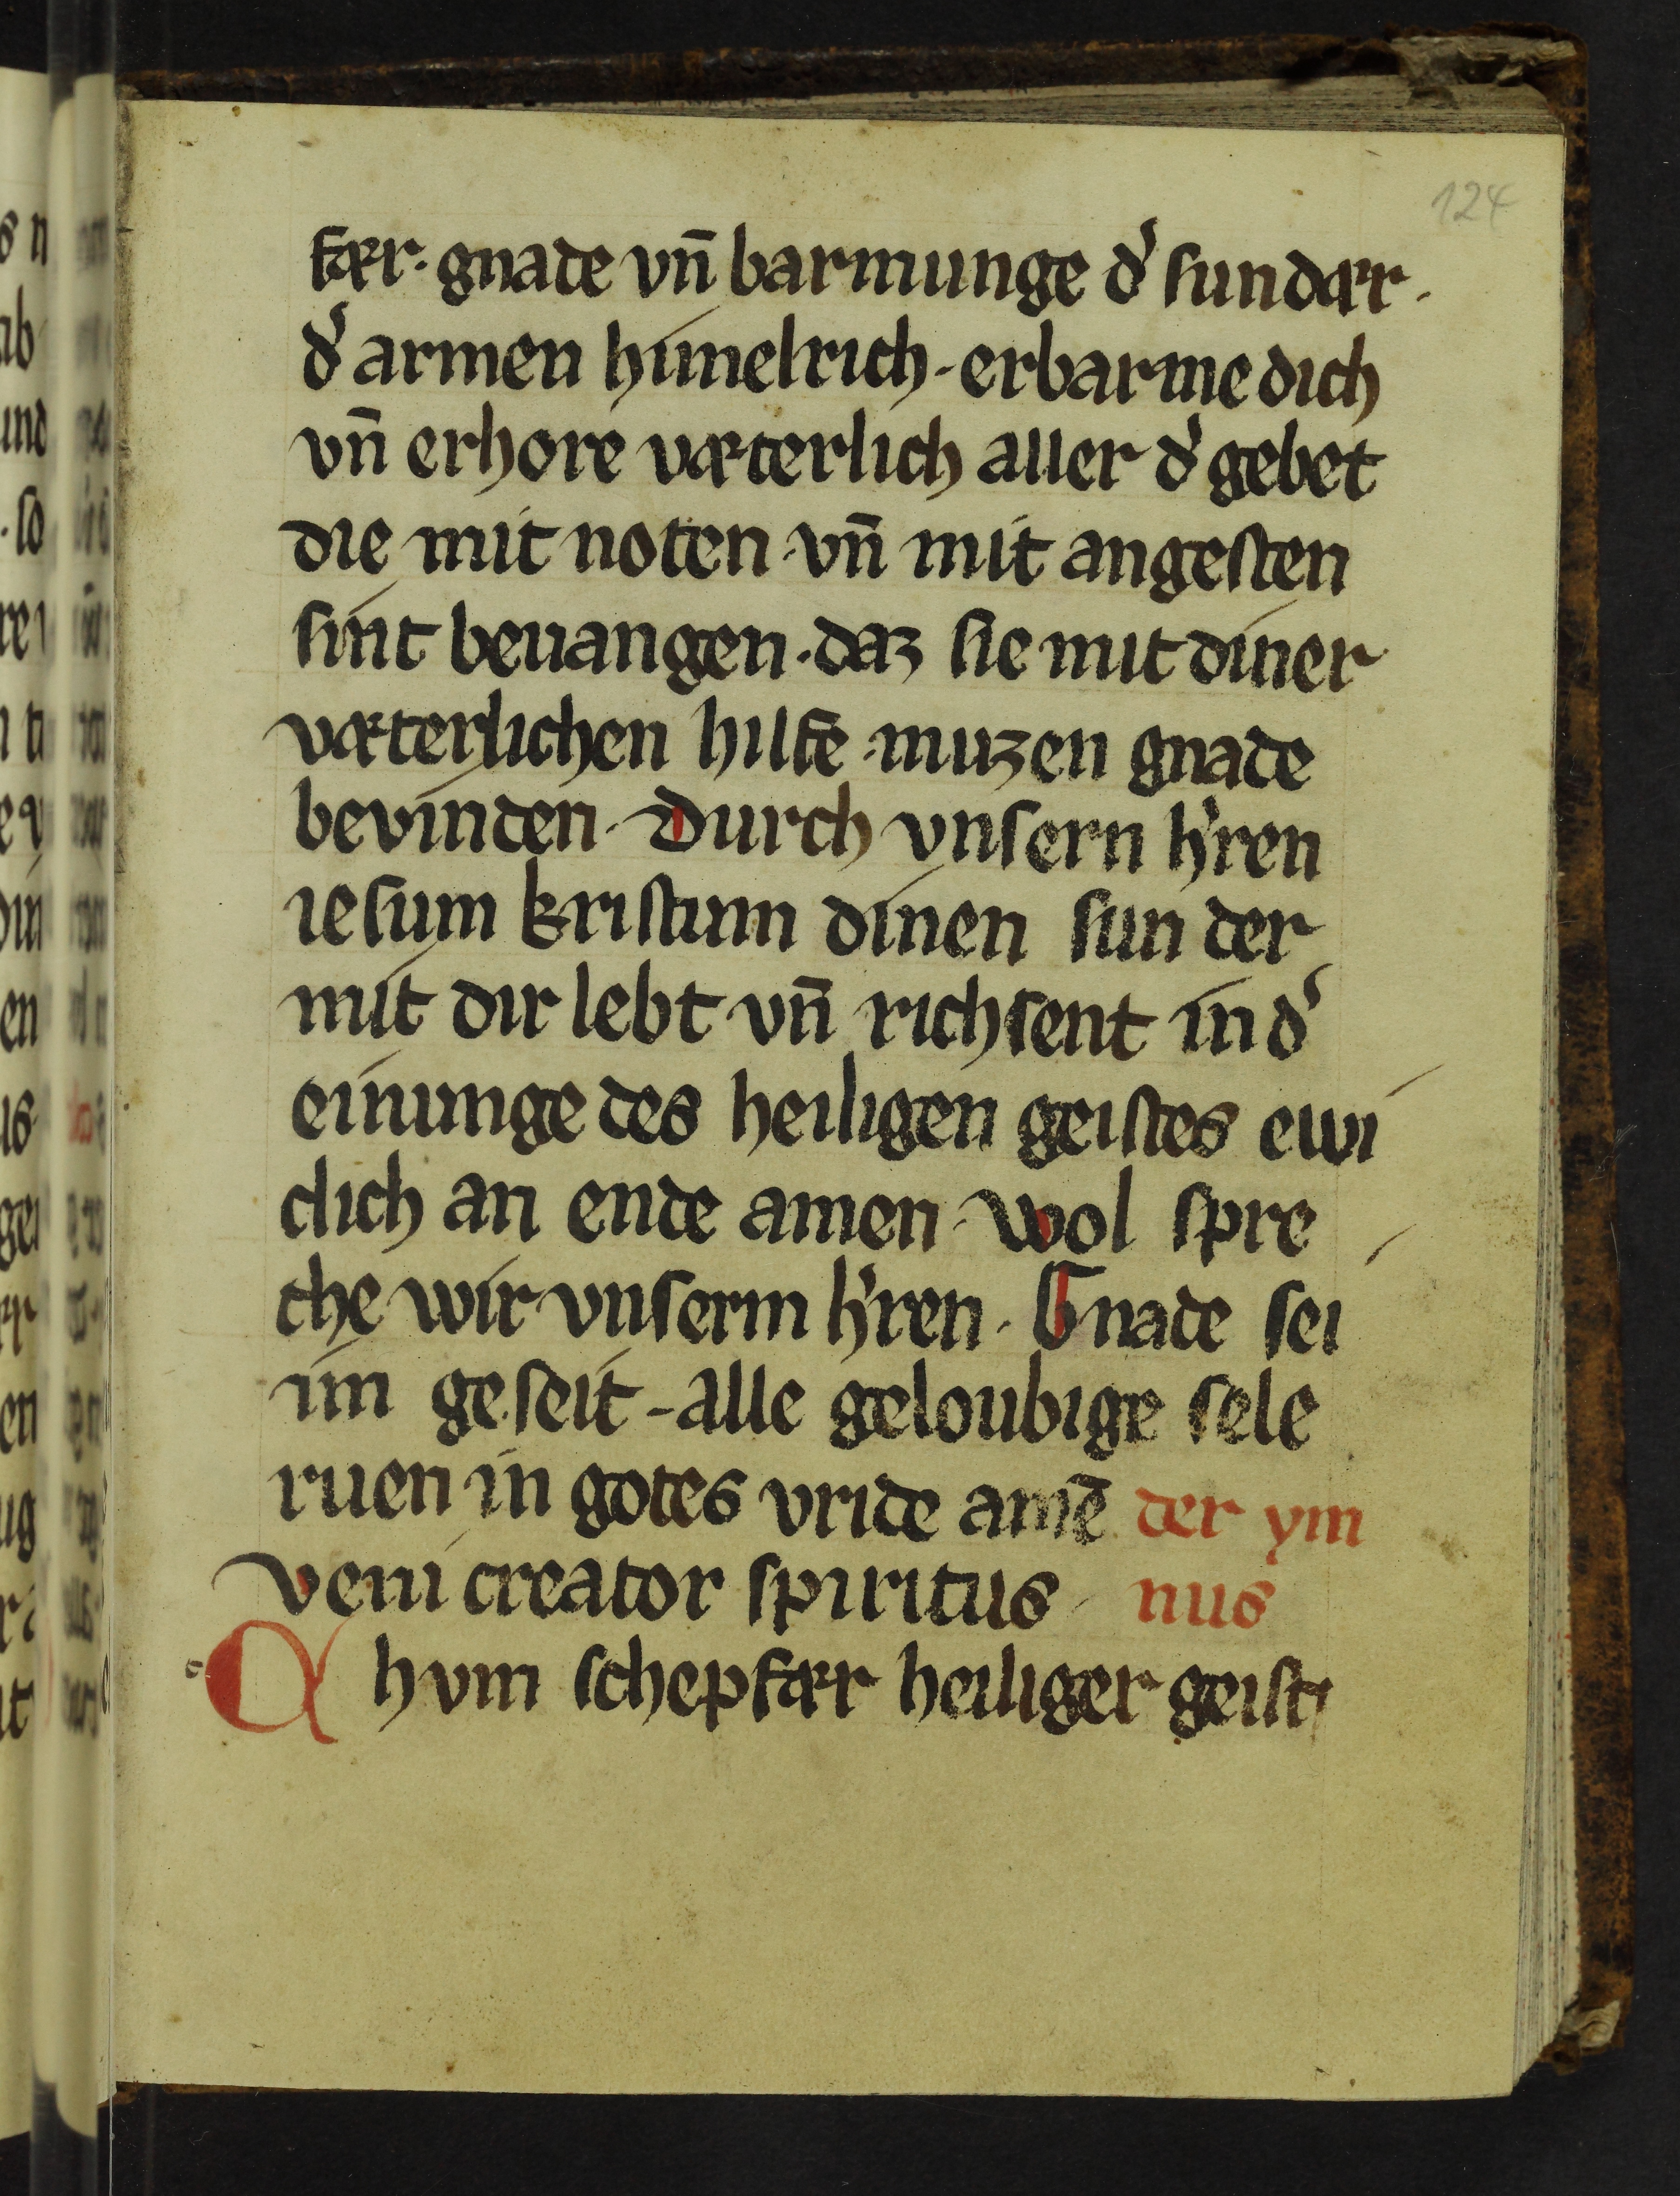 124
fær. gnade vn̄ barmunge d͛ sundær.
d͛ armen himelrich. erbarme dich
vn̄ erhore væterlich aller d͛ gebet
die mit noten vn̄ mit angesten
sint beuangen. daz sie mit diner
væterlichen hilfe muzen gnade
bevinden. Durch vnsern h͛ren
iesum kristum dinen sun der
mit dir lebt vn̄ richsent in d͛
einunge des heiligen geistes ewi
clich an ende amen. Wol spre
che wir vnserm h͛ren. Gnade sei
im geseit. alle geloubige sele
ruen in gotes vride amē der ym
Veni creator spiritus nus
A hvm schepfær heiliger geist